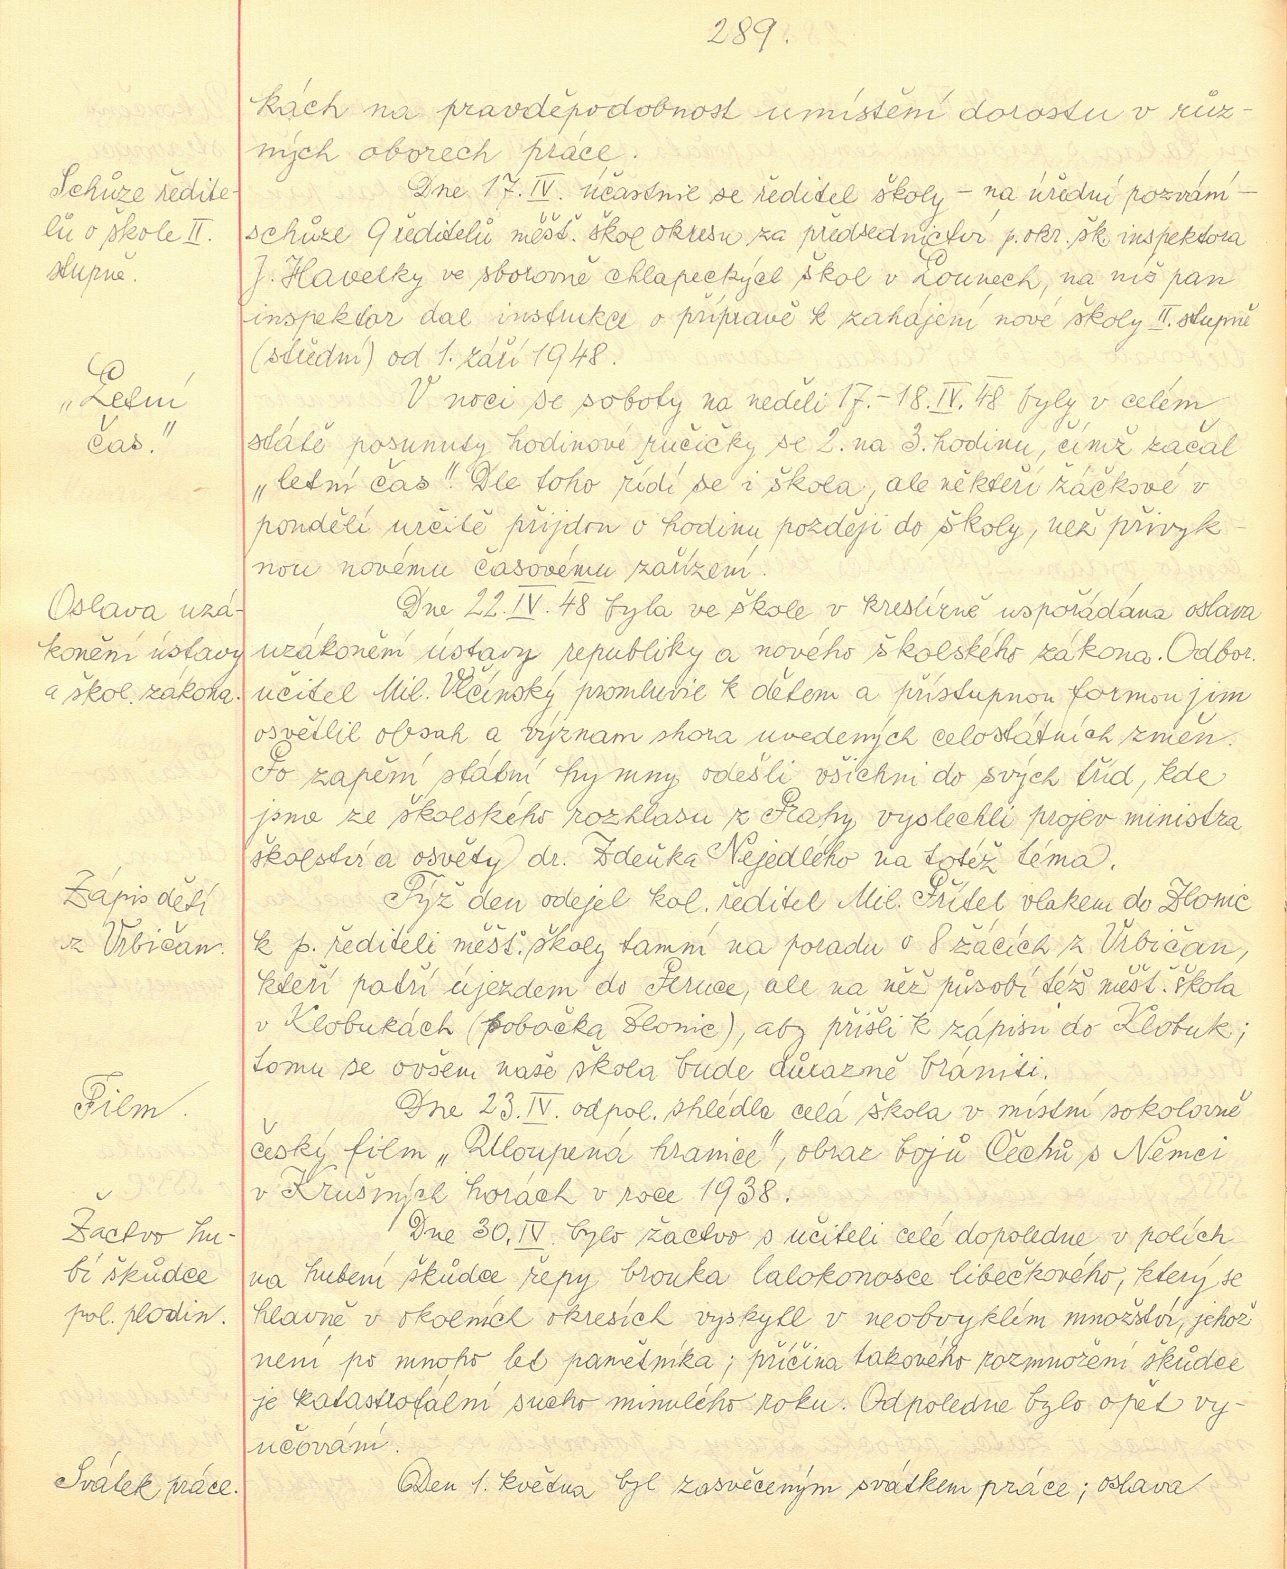 289.
kách na pravděpodobnost umístění dorostu v růz-
ných oborech práce.
Schůze ředite-
lů o škole II.
stupně.
Dne 17. IV. účastnil se ředitel školy – na úřední pozvání –
schůze 9 ředitelů měšť. škol okresu za předsednictví p. okr. šk. inspektora
J. Havelky ve sborovně chlapeckých škol v Lounech, na níž pan
inspektor dal instrukce o přípravě k zahájení nové školy II. stupně
(střední) od 1. září 1948.
„Letní
čas."
V noci se soboty na neděli 17. – 18. IV. 48 byly v celém
státě posunuty hodinové ručičky se 2. na 3. hodinu, čímž začal
„letní čas". Dle toho řídí se i škola, ale někteří žáčkové v
pondělí určitě přijdou o hodinu později do školy, než přivyk-
nou novému časovému zařízení.
Oslava uzá-
konění ústavy
a škol. zákona.
Dne 22. IV. 48 byla ve škole v kreslírně uspořádána oslava
uzákonění ústavy republiky a nového školského zákona. Odbor.
učitel Mil. Vlčínský promluvil k dětem a přístupnou formou jim
osvětlil obsah a význam shora uvedených celostátních změn.
Po zapění státní hymny odešli všichni do svých tříd, kde
jsme ze školského rozhlasu z Prahy vyslechli projev ministra
školství a osvěty dr. Zdeňka Nejedlého na totéž téma.
Zápis dětí
z Vrbičan.
Týž den odejel kol. ředitel Mil. Přítel vlakem do Zlonic
k p. řediteli měšť. školy tamní na poradu o 8 žácích z Vrbičan,
kteří patří újezdem do Peruce, ale na něž působí též měšť. škola
v Klobukách (pobočka Zlonic), aby přišli k zápisu do Klobuk;
tomu se ovšem naše škola bude důrazně brániti.
Film.
Dne 23. IV. odpol. shlédla celá škola v místní sokolovně
český film „Uloupená hranice", obraz bojů Čechů s Němci
v Krušných horách v roce 1938.
Žactvo hu-
bí škůdce
pol. plodin.
Dne 30. IV. bylo žactvo s učiteli celé dopoledne v polích
na hubení škůdce řepy brouka lalokonosce libečkového, který se
hlavně v okolních okresích vyskytl v neobvyklém množství, jehož
není po mnoho let pamětníka; příčina takového rozmnožení škůdce
je katastrofální sucho minulého roku. Odpoledne bylo opět vy-
učování.
Svátek práce.
Den 1. května byl zasvěceným svátkem práce; oslava